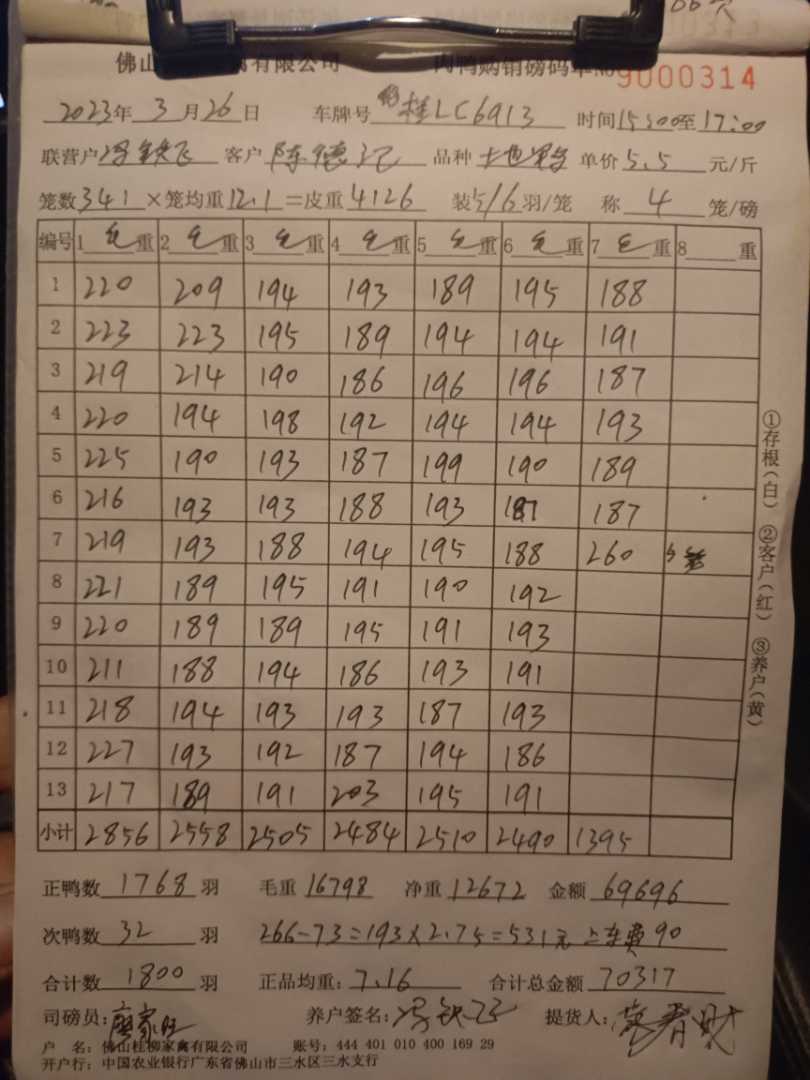 佛山 禽有限公司 肉鸭购销磅码单№9000314
2023年 3 月 26 日 车牌号 桂LC6913 时间 15:00至 17:00
联营户 冯铁飞 客户 陈德记 品种 单价 5.5 元/斤
笼数 341 ×笼均重 12.1 =皮重 4126 装 5/6 羽/笼 称 4 笼/磅
编号 1 毛 重 2 毛 重 3 毛 重 4 毛 重 5 毛 重 6 毛 重 7 毛 重 8 重
1 220 209 194 193 189 195 188
2 223 223 195 189 194 194 191
3 219 214 190 186 196 196 187
4 220 194 198 192 194 194 193
5 225 190 193 187 199 190 189
6 216 193 193 188 193 187 187
7 219 193 188 194 195 188 260 5笼
8 221 189 195 191 190 192
9 220 189 189 195 191 193
10 211 188 194 186 193 191
11 218 194 193 193 187 193
12 227 193 192 187 194 186
13 217 189 191 203 195 191
小计 2856 2558 2505 2484 2510 2490 1395
①存根(白) ②客户(红) ③养户(黄)
正鸭数 1768 羽 毛重 16798 净重 12672 金额 69696
次鸭数 32 羽 266-73=193×2.75=531元 上车费90
合计数 1800 羽 正品均重: 7.16 合计总金额 70317
司磅员: 养户签名: 冯铁飞 提货人:
户 名: 佛山桂柳家禽有限公司 账号: 444 401 010 400 169 29
开户行: 中国农业银行广东省佛山市三水区三水支行